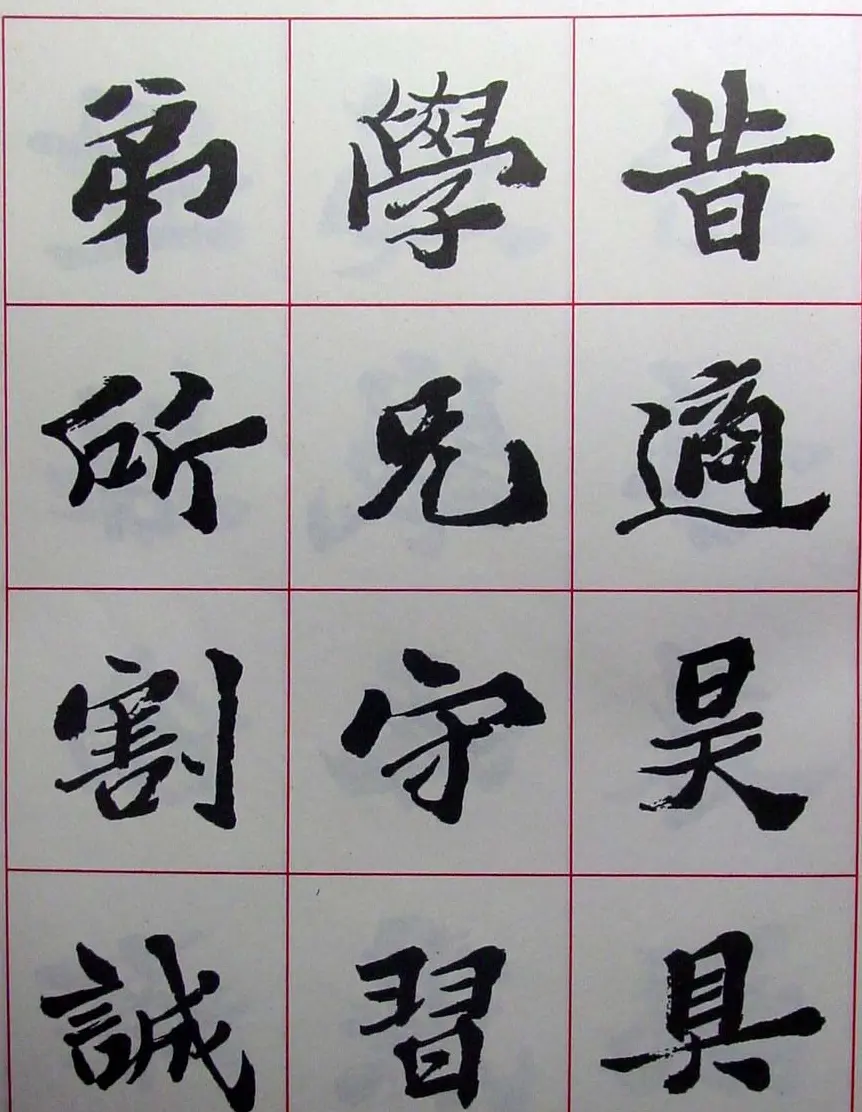 昔適昊具
學兄守習
弟所割誠